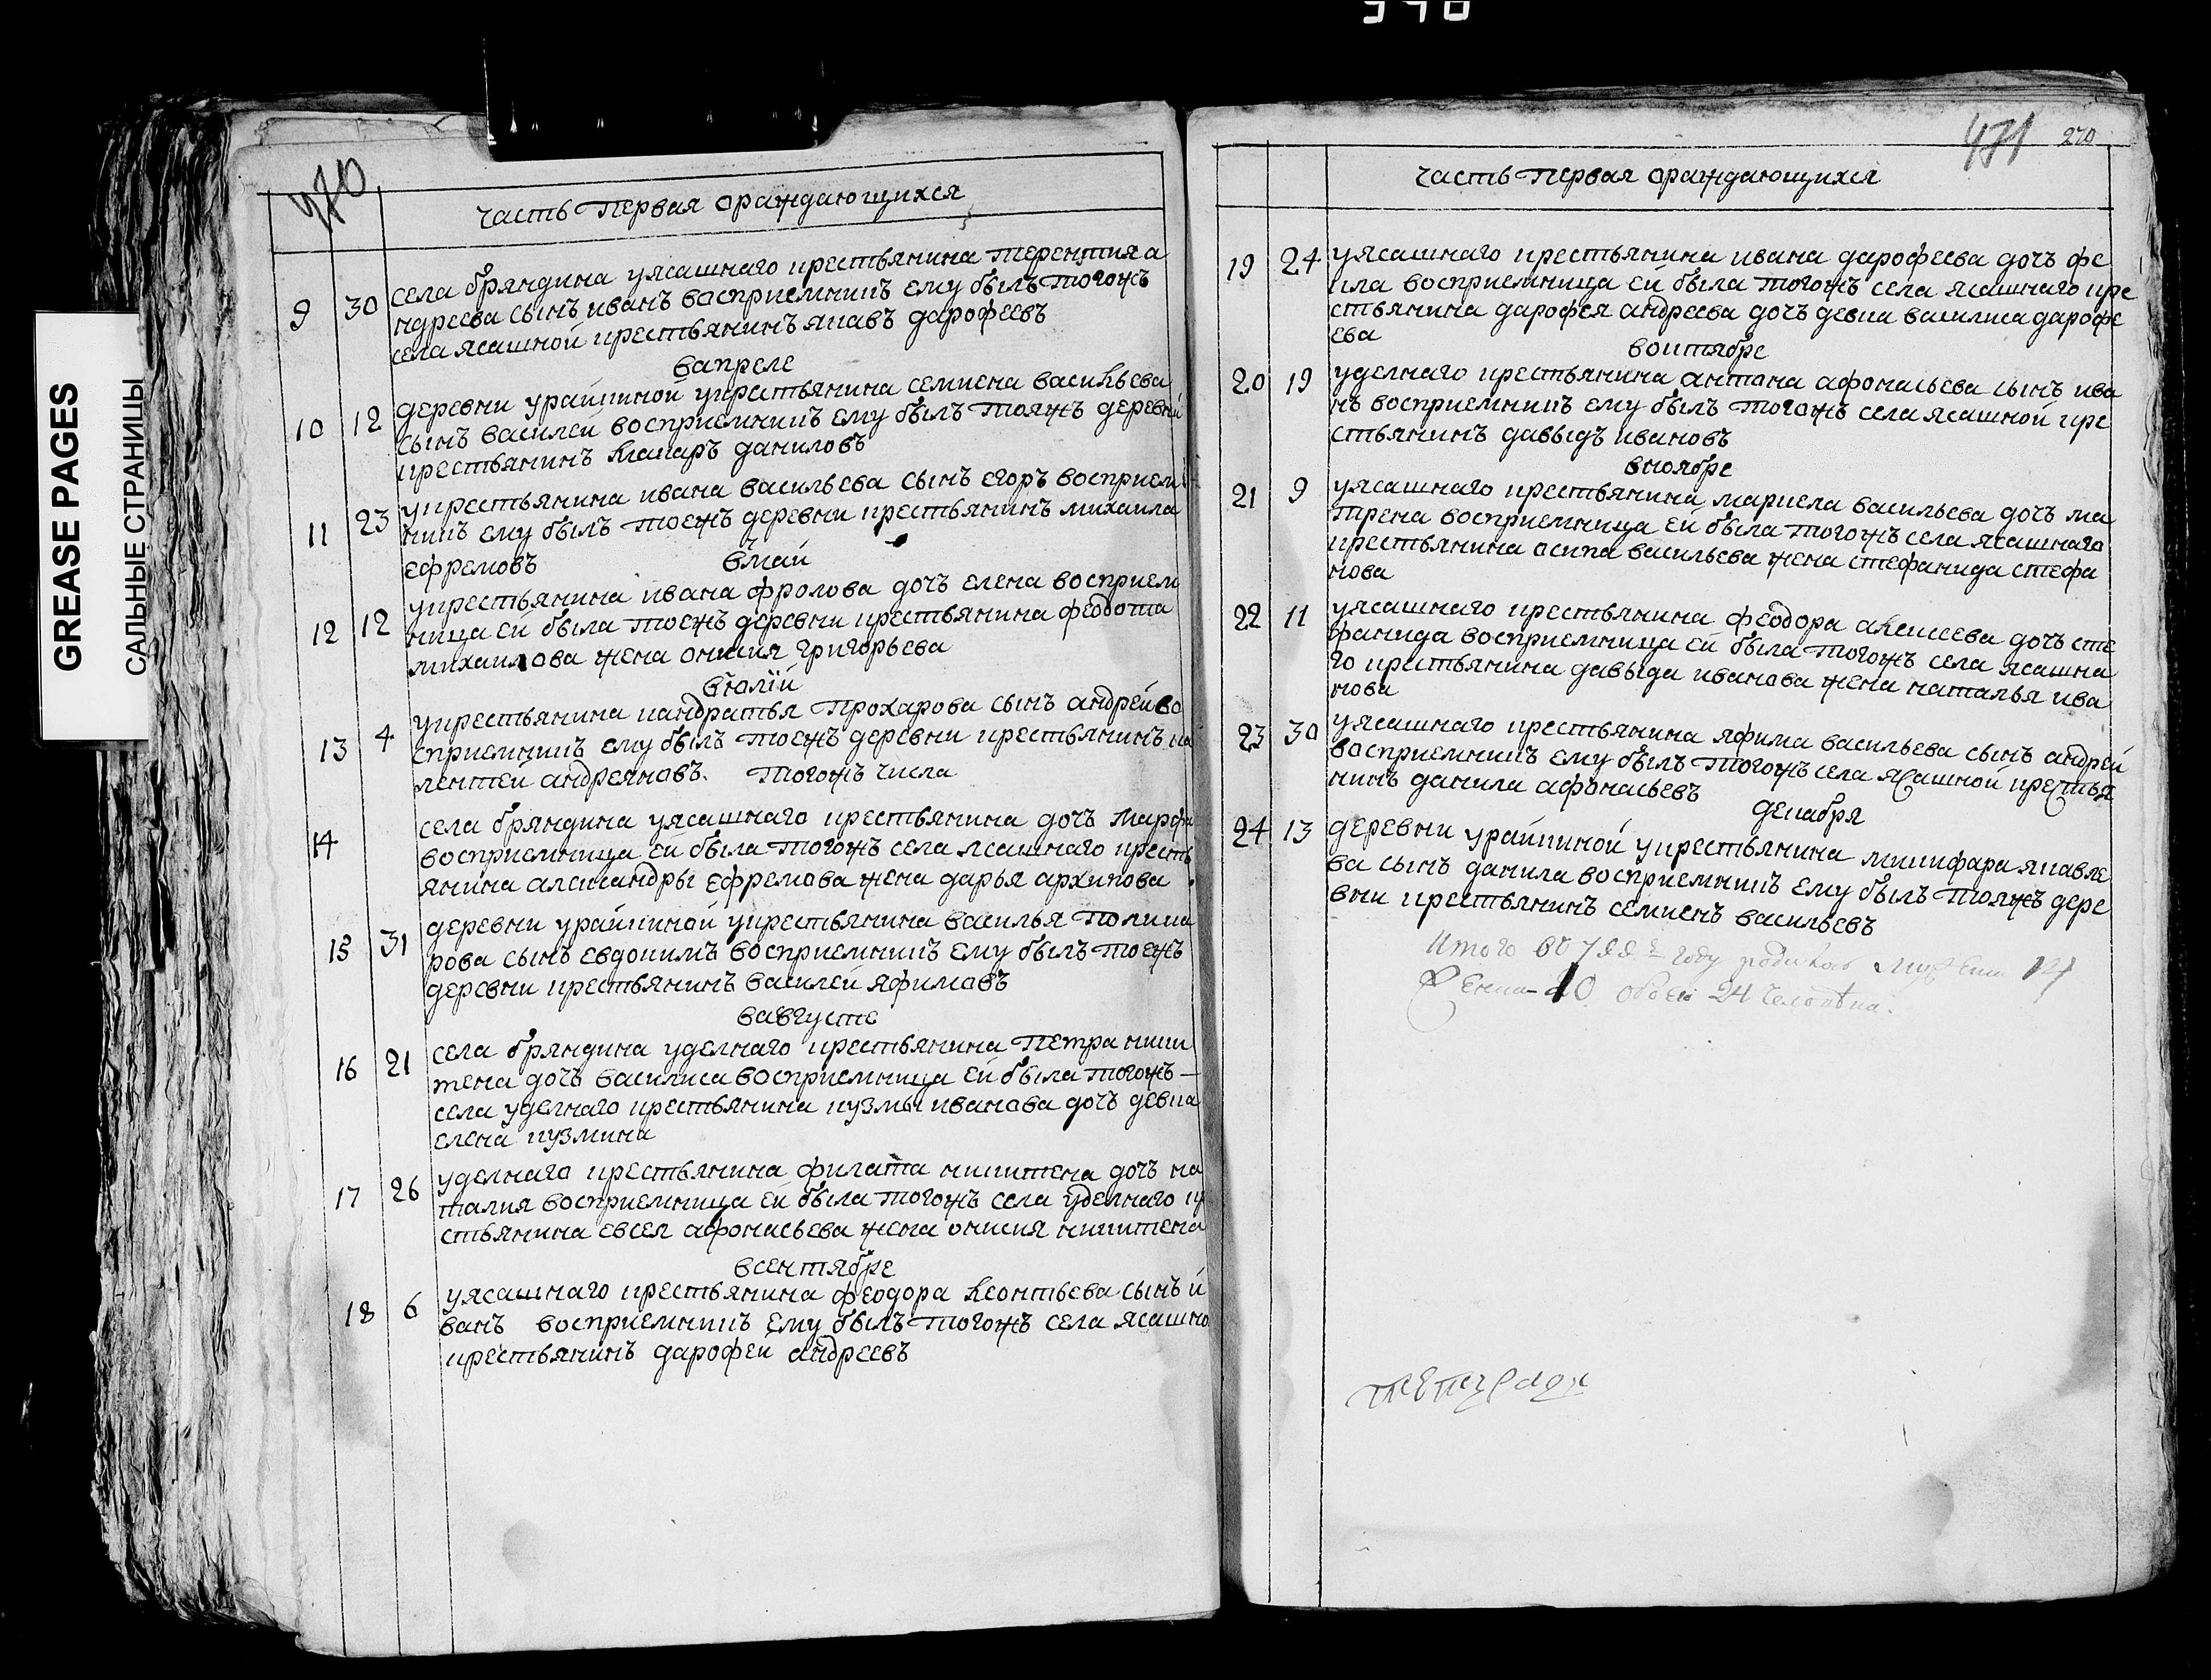 GREASE PAGES
САЛЬНЫЕ СТРАНИЦЫ
470
часть первая ораждающихся
9 30 села бряндина уясашнаго крестьянина терентия а
ндреева сынъ иванъ восприемникъ ему былъ тогожъ
села ясашной крестьянинъ яковъ дарофеевъ
вапреле
10 12 деревни урайкиной укрестьянина семиена васильева
сынъ василеи восприемникъ ему былъ тояжъ деревни
крестьянинъ макаръ даниловъ
11 23 укрестьянина ивана васильева сынъ егоръ восприем
никъ ему былъ тоежъ деревни крестьянинъ михаила
ефремовъ
вмаи
12 12 укрестьянина ивана фролова дочъ елена восприем
ница ей была тоежъ деревни крестьянина федота
михаилова жена онисия григорьева
виюлїи
13 4 укрестьянина кандратья прохарова сынъ андрей во
сприемникъ ему былъ тоежъ деревни крестьянинъ ка
лентей андреяновъ. тогожъ числа
14 села бряндина уясашнаго крестьянина дочъ марфа
восприемница ей была тогожъ села ясашнаго кресть
янина александры ефремова жена дарья архипова
15 31 деревни урайкиной укрестьянина василья полика
рова сынъ евдокимъ восприемникъ ему былъ тоежъ
деревни крестьянинъ василей яфимовъ
вавгусте
16 21 села бряндина уделнаго крестьянина петра ники
тена дочъ василиса восприемница ей была тогожъ
села уделнаго крестьянина кузмы иванова дочъ девка
елена кузмина
17 26 уделнаго крестьянина филата никитена дочъ на
талия восприемница ей была тогожъ села уделнаго к
стьянина евсея афонасьева жена онисия никитена
всентябре
18 6 уясашнаго крестьянина феодора леонтьева сынъ и
ванъ восприемникъ ему былъ тогожъ села ясашно
крестьянинъ дарофеи андреевъ
471 270
часть первая ораждающихся
19 24 уясашнаго крестьянина ивана дарофеева дочъ фе
кла восприемница ей была тогожъ села ясашнаго кре
стьянина дарофея андреева дочъ девка василиса дарофе
ева
воктябре
20 19 уделнаго крестьянина антона афонасьева сынъ ива
нъ восприемникъ ему былъ тогожъ села ясашной кре
стьянинъ давыдъ ивановъ
вноябре
21 9 уясашнаго крестьянина маркела васильева дочъ ма
трена восприемница ей была тогожъ села ясашнаго
крестьянина осипа васильева жена стефанида стефа
нова
22 11 уясашнаго крестьянина феодора алексеева дочъ сте
фанида восприемница ей была тогожъ села ясашна
го крестьянина давыда иванова жена наталья ива
нова
23 30 уясашнаго крестьянина яфима васильева сынъ андрей
восприемникъ ему былъ тогожъ села ясашной крестья
нинъ данила афонасьевъ
декабря
24 13 деревни урайкиной укрестьянина никифара яковле
ва сынъ данила восприемникъ ему былъ тояжъ дере
вни крестьянинъ семиенъ васильевъ
Итого во году родилось муж 14
Женска 10 обоего 24 человека.